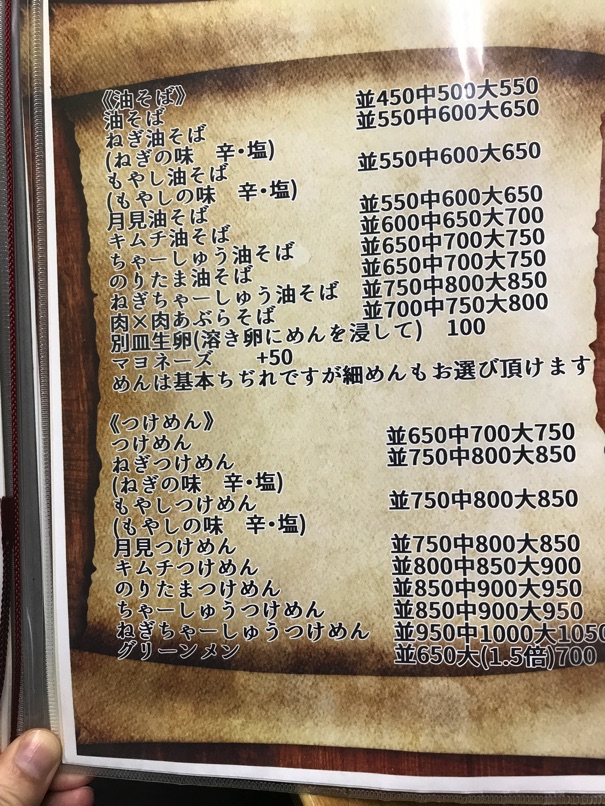 《油そば》
油そば 並450中500大550
ねぎ油そば 並550中600大650
(ねぎの味 辛・塩)
もやし油そば 並550中600大650
(もやしの味 辛・塩)
月見油そば 並550中600大650
キムチ油そば 並600中650大700
ちゃーしゅう油そば 並650中700大750
のりたま油そば 並650中700大750
ねぎちゃーしゅう油そば 並750中800大850
肉×肉あぶらそば 並700中750大800
別皿生卵(溶き卵にめんを浸して) 100
マヨネーズ +50
めんは基本ちぢれですが細めんもお選び頂けます
《つけめん》
つけめん 並650中700大750
ねぎつけめん 並750中800大850
(ねぎの味 辛・塩)
もやしつけめん 並750中800大850
(もやしの味 辛・塩)
月見つけめん 並750中800大850
キムチつけめん 並800中850大900
のりたまつけめん 並850中900大950
ちゃーしゅうつけめん 並850中900大950
ねぎちゃーしゅうつけめん 並950中1000大1050
グリーンメン 並650大(1.5倍)700